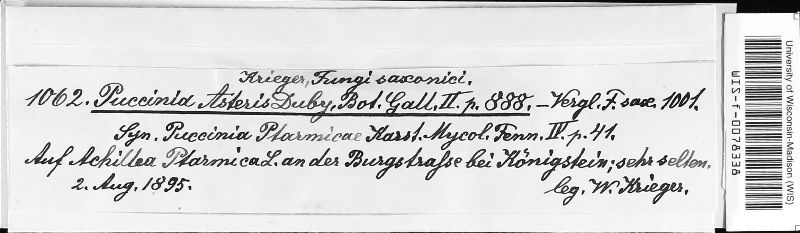 Krieger, Fungi saxonici.
1062. Puccinia Asteris Duby, Bot. Gall. II. p. 888. – Vergl. F. sax. 1001.
Syn. Puccinia Ptarmicae Karst. Mycol. Fenn. IV. p. 41.
Auf Achillea Ptarmica L. an der Burgstraße bei Königstein; sehr selten.
2. Aug. 1895. leg. W. Krieger.
University of Wisconsin-Madison (WIS)
WIS-f-0078338